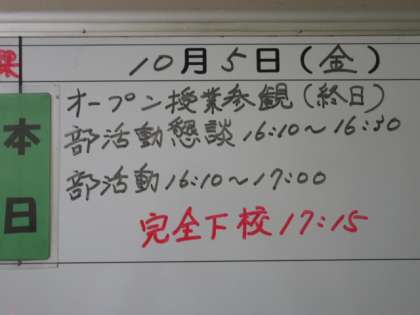 10月5日(金)
本日
オープン授業参観(終日)
部活動懇談16:10～16:30
部活動16:10～17:00
完全下校17:15